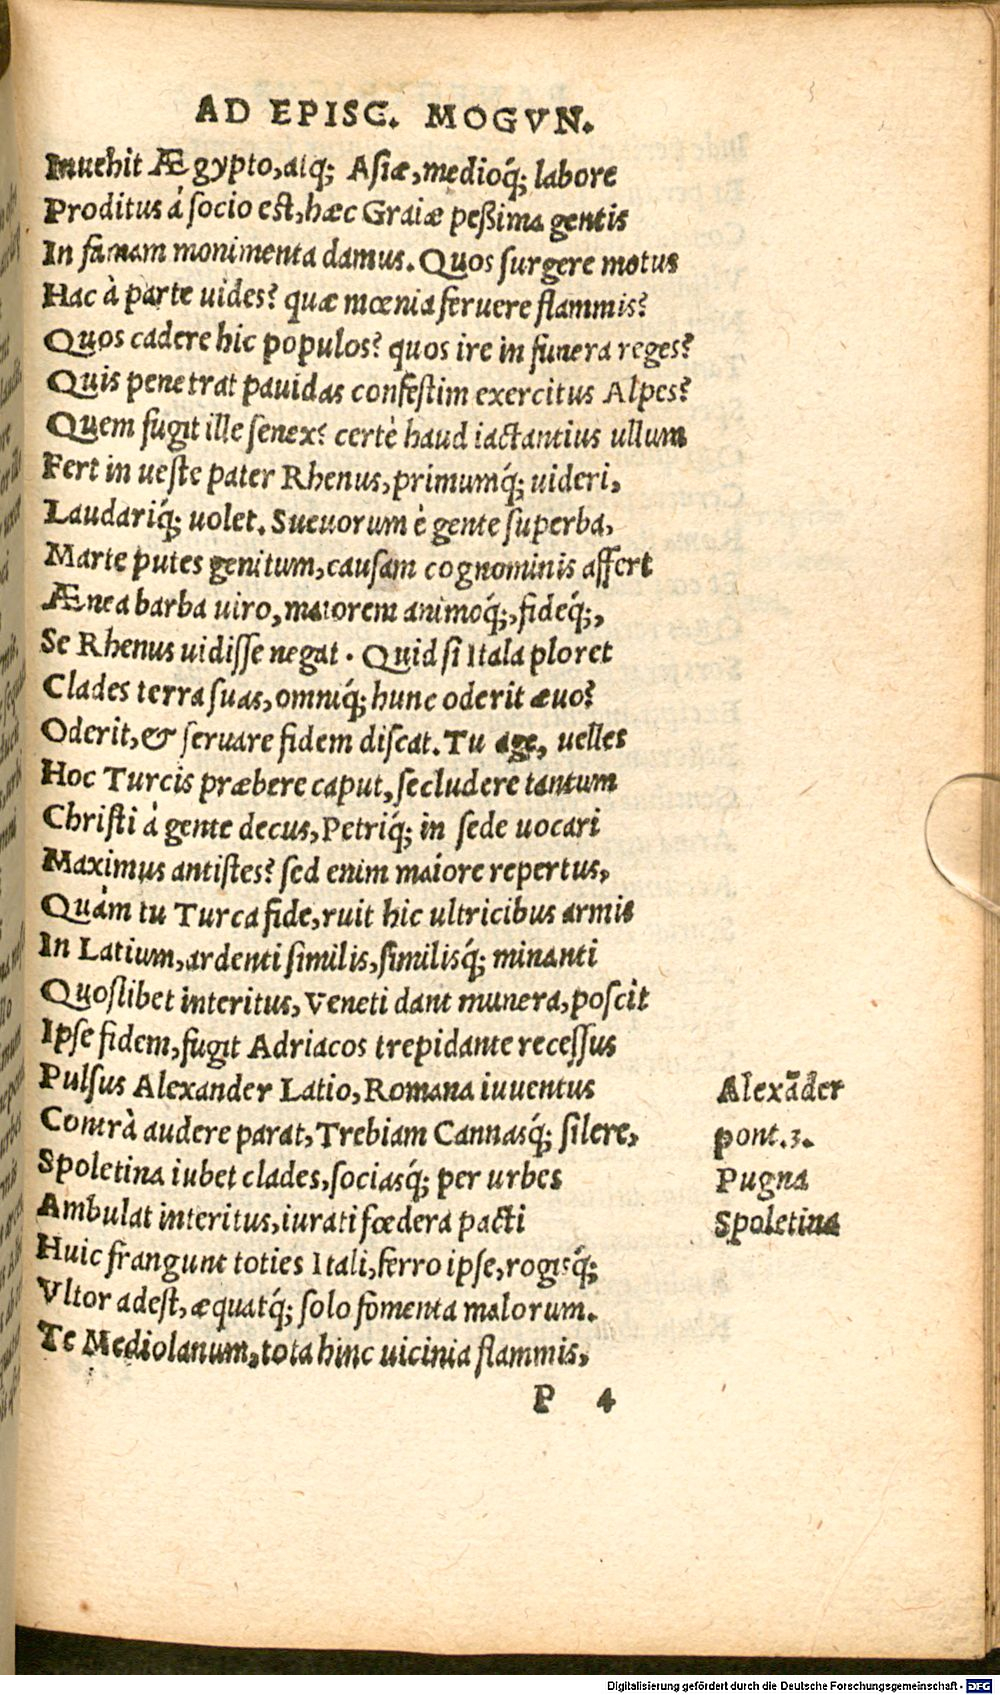 AD EPISC. MOGVN.
Inuehit Ægypto, atq; Asiæ, medioq́; labore
Proditus á socio est, hæc Graiæ peßima gentis
In famam monimenta damus. Quos surgere motus
Hac à parte uides? quæ mœnia feruere flammis?
Quos cadere hic populos? quos ire in funera reges?
Quis penetrat pauidas confestim exercitus Alpes?
Quem fugit ille senex? certè haud iactantius ullum
Fert in ueste pater Rhenus, primumq́; uideri,
Laudariq́; uolet. Sueuorum è gente superba,
Marte putes genitum, causam cognominis affert
Ænea barba uiro, maiorem animoq́;, fideq́;,
Se Rhenus uidisse negat. Quid si Itala ploret
Clades terra suas, omniq́; hunc oderit æuo?
Oderit, & seruare fidem discat. Tu age, uelles
Hoc Turcis præbere caput, secludere tantum
Christi á gente decus, Petriq́; in sede uocari
Maximus antistes? sed enim maiore repertus,
Quàm tu Turca fide, ruit hic ultricibus armis
In Latium, ardenti similis, similisq́; minanti
Quoslibet interitus, Veneti dant munera, poscit
Ipse fidem, fugit Adriacos trepidante recessus
Pulsus Alexander Latio, Romana iuuentus
Contrà audere parat, Trebiam Cannasq́; silere,
Spoletina iubet clades, sociasq́; per urbes
Ambulat interitus, iurati fœdera pacti
Huic frangunt toties Itali, ferro ipse, rogisq́;
Vltor adest, æquatq́; solo fomenta malorum.
Te Mediolanum, tota hinc uicinia flammis,
Alexãder
pont.3.
Pugna
Spoletina
P 4
Digitalisierung gefördert durch die Deutsche Forschungsgemeinschaft - DFG